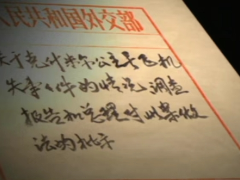 人民共和国外交部
关于克什米尔公主号飞机
失事事件的情况调查
报告和总理对此案做
法的批示